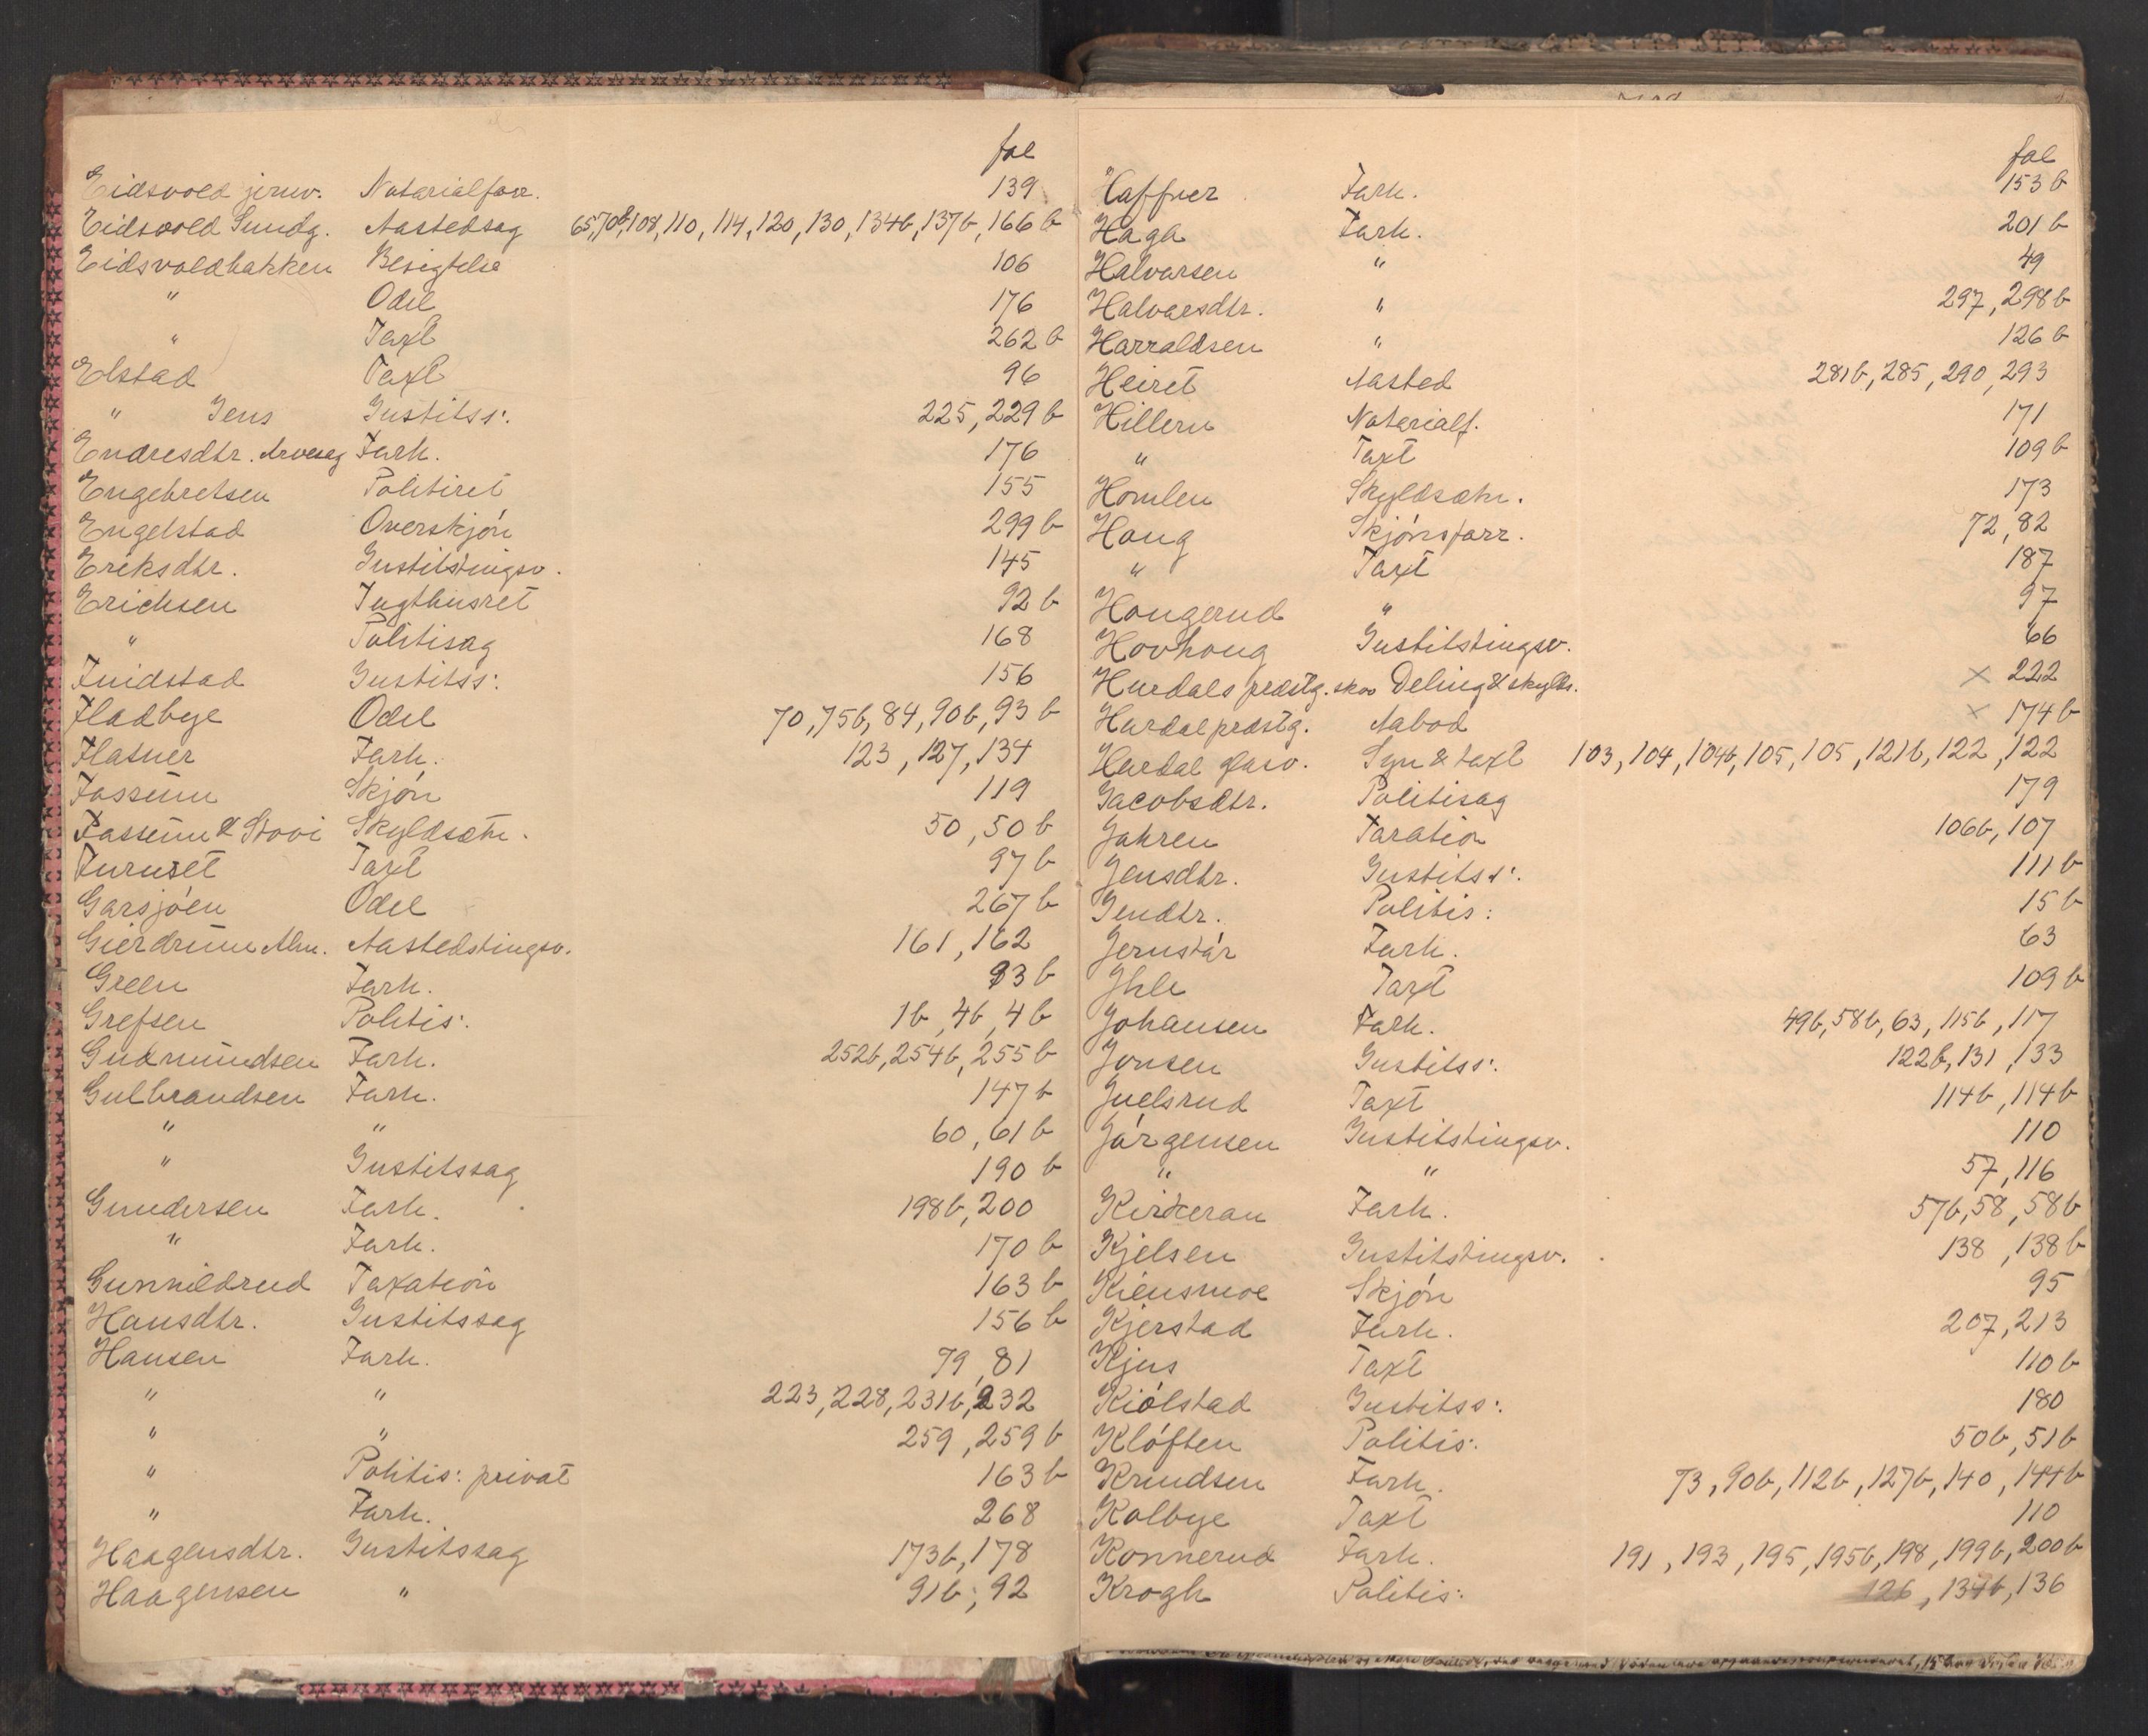 fol
Eidsvold jernv. Notarialforr. 139
Eidsvold Sundg. Aastedsag 65, 70b, 108, 110, 114, 120, 130, 134b, 137b, 166b
Eidsvoldbakken Besigtelse 106
" Odel 176
" Taxt 262b
Elstad Taxt 96
" Jens Justitss: 225, 229b
Endresdtr. Arvesag Forh. 176
Engebretsen Politiret 155
Engelstad Overskjön 299b
Eriksdtr. Justitstingsv. 145
Erichsen Tugthusret 92b
" Politisag 168
Finidstad Justitss: 156
Fladbye Odel 70, 75b, 84, 90b, 93b
Flatner Forh. 123, 127, 134
Fossum Skjön 119
Fossum & Stovi Skyldsætn. 50, 50b
Furuset Taxt 97b
Garsjöen Odel 267b
Gierdrum Alm. Aastedstingsv. 161, 162
Green Forh. 93b
Grefsen Politis: 1b, 4b, 4b
Gudmundsen Forh. 252b, 254b, 255b
Gulbrandsen Forh. 147b
" " 60, 61b
" Justitssag 190b
Gundersen Forh. 198b, 200
" Forh. 170b
Gunnildrud Taxation 163b
Hansdtr. Justitssag 156b
Hansen Forh. 79, 81
" " 223, 228, 231b, 232
" " 259, 259b
" Politis: privat 163b
" Forh. 268
Haagensdtr. Justitssag 173b, 178
Haagensen " 91b, 92
fol
Haffner Forh. 153b
Haga Forh. 201b
Halvorsen " 49
Halvorsdtr. " 297, 298b
Harraldsen " 126b
Heiret Aasted 281b, 285, 290, 293
Hillern Notarialf. 171
" Taxt 109b
Homlen Skyldsætn. 173
Houg Skjönsforr. 72, 82
" Taxt 187
Hougerud " 97
Hovhoug Justitstingsv. 66
Hurdals præstg. skov Deling & skylds. × 222
Hurdal præstg. Aabod × 174b
Hurdal glasv. Syn & taxt 103, 104, 104b, 105, 105, 121b, 122, 122
Jacobsdtr. Politisag 179
Jahren Taxation 106b, 107
Jensdtr. Justitss: 111b
Jendtr. Politis: 15b
Jernskár Forh. 63
Ihle Taxt 109b
Johansen Forh. 49b, 58b, 63, 115b, 117
Jonsen Justitss: 122b, 131, 133
Juelsrud Taxt 114b, 114b
Jörgensen Justitstingsv. 110
" " 57, 116
Kirkeran Forh. 57b, 58, 58b
Kjelsen Justitstingsv. 138, 138b
Kiensmoe Skjön 95
Kjerstad Forh. 207, 213
Kjus Taxt 110b
Kiölstad Justitss: 180
Klöften Politis: 50b, 51b
Knudsen Forh. 73, 90b, 112b, 127b, 140, 144b
Kolbye Taxt 110
Konnerud Forh. 191, 193, 195, 195b, 198, 199b, 200b
Krogh Politis: 126, 134b, 136